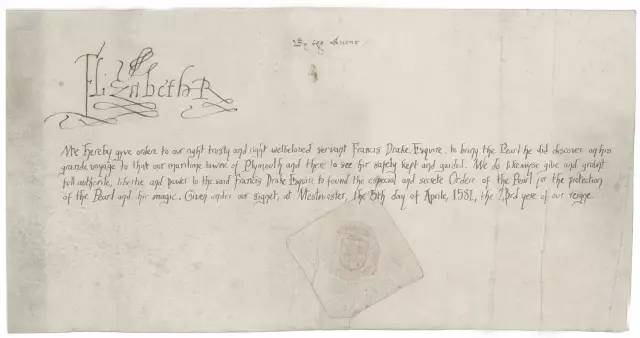 By the Quene
Elizabeth R
We hereby give ordere to our right trusty and right welbeloved servant Francis Drake Esquire, to bring the Pearl he did discover on his
grande voyage to that our maritime towne of Plymouth and there to see hir safely kept and garded. We do likewyse give and graunt
full authoritie, libertie and power to the said Francis Drake Esquire to found the especial and secrete Ordere of the Pearl for the protection
of the Pearl and hir magic. Given under our signet, at Westminster, the 5th day of Aprile, 1581, the 23rd yere of our reigne.